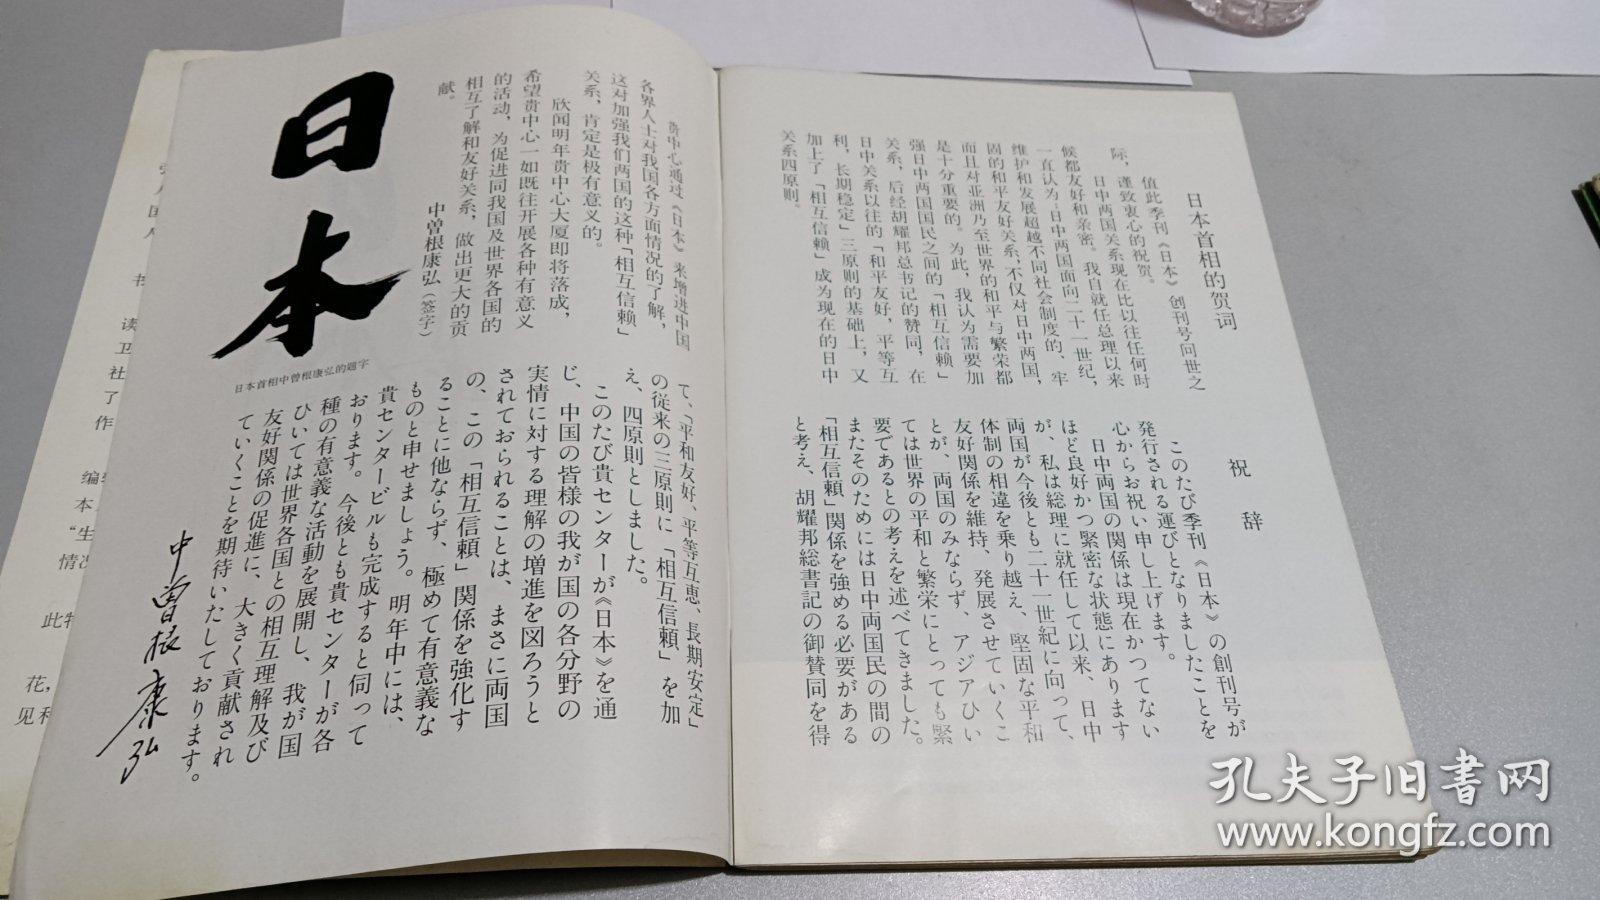 日本首相的贺词
值此季刊《日本》创刊号问世之
际，谨致衷心的祝贺。
日中两国关系现在比以往任何时
候都友好和亲密。我自就任总理以来
一直认为：日中两国面向二十一世纪，
维护和发展超越不同社会制度的、牢
固的和平友好关系，不仅对日中两国，
而且对亚洲乃至世界的和平与繁荣都
是十分重要的。为此，我认为需要加
强日中两国国民之间的「相互信赖」
关系，后经胡耀邦总书记的赞同，在
日中关系以往的「和平友好，平等互
利，长期稳定」三原则的基础上，又
加上了「相互信赖」成为现在的日中
关系四原则。
贵中心通过《日本》来增进中国
各界人士对我国各方面情况的了解，
这对加强我们两国的这种「相互信赖」
关系，肯定是极有意义的。
欣闻明年贵中心大厦即将落成，
希望贵中心一如既往开展各种有意义
的活动，为促进同我国及世界各国的
相互了解和友好关系，做出更大的贡
献。
中曾根康弘（签字）
日本
日本首相中曾根康弘的题字
祝辞
このたび季刊《日本》の創刊号が
発行される運びとなりましたことを
心からお祝い申し上げます。
日中両国の関係は現在かつてない
ほど良好かつ緊密な状態にあります
が、私は総理に就任して以来、日中
両国が今後とも二十一世紀に向って、
体制の相違を乗り越え、堅固な平和
友好関係を維持、発展させていくこ
とが、両国のみならず、アジアひい
ては世界の平和と繁栄にとっても緊
要であるとの考えを述べてきました。
またそのためには日中両国民の間の
「相互信頼」関係を強める必要がある
と考え、胡耀邦総書記の御賛同を得
て、「平和友好、平等互恵、長期安定」
の従来の三原則に「相互信頼」を加
え、四原則としました。
このたび貴センターが《日本》を通
じ、中国の皆様の我が国の各分野の
実情に対する理解の増進を図ろうと
されておられることは、まさに両国
の、この「相互信頼」関係を強化す
ることに他ならず、極めて有意義な
ものと申せましょう。明年中には、
貴センタービルも完成すると伺って
おります。今後とも貴センターが各
種の有意義な活動を展開し、我が国
ひいては世界各国との相互理解及び
友好関係の促進に、大きく貢献され
ていくことを期待いたしております。
中曽根康弘
书
读
卫
社
了
作
编
本
“生
情况
此特
花，
见和
孔夫子旧书网
www.kongfz.com